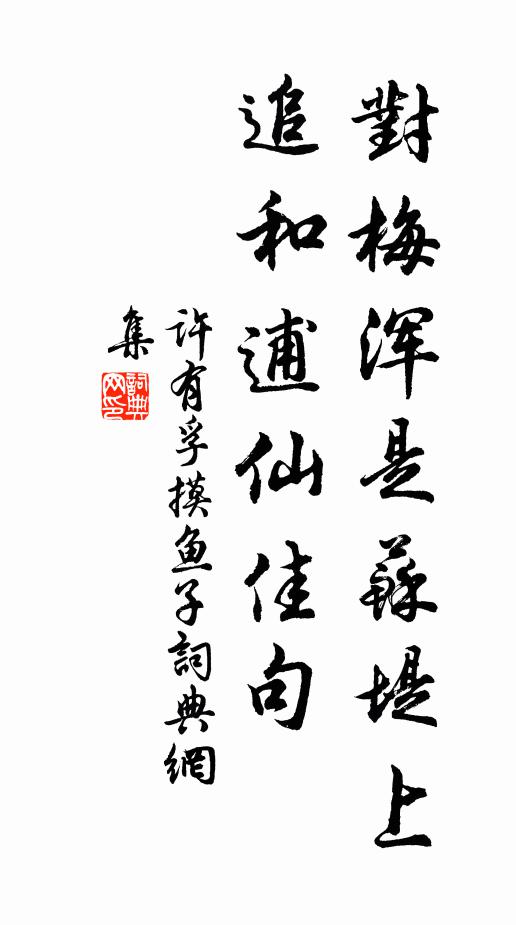 對梅浑是蘇堤上
追和逋仙佳句
许有孚摸鱼子詞典網
集
詞典网印